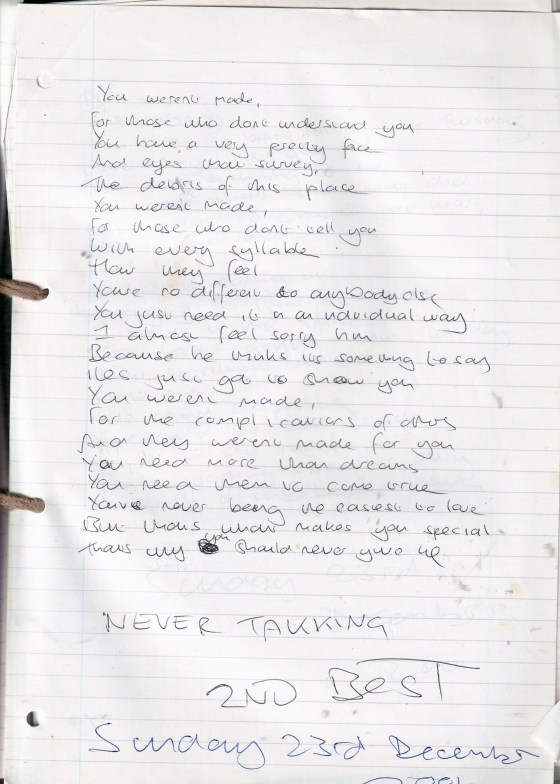 You werent made,
For those who dont understand you
You have a very pretty face
And eyes that survey,
The debris of this place
You werent made,
For those who dont tell you
With every syllable
How they feel
Youre no different to anybody else
You just need it in an individual way
I almost feel sorry him
Because he thinks its something to say
Hes just got to show you
You werent made,
For the complications of others
And they werent made for you
You need more than dreams
You need them to come true
Youve never being the easiest to love
But thats what makes you special
Thats why you should never give up
NEVER TAKKING
2ND BEST
Sunday 23rd December